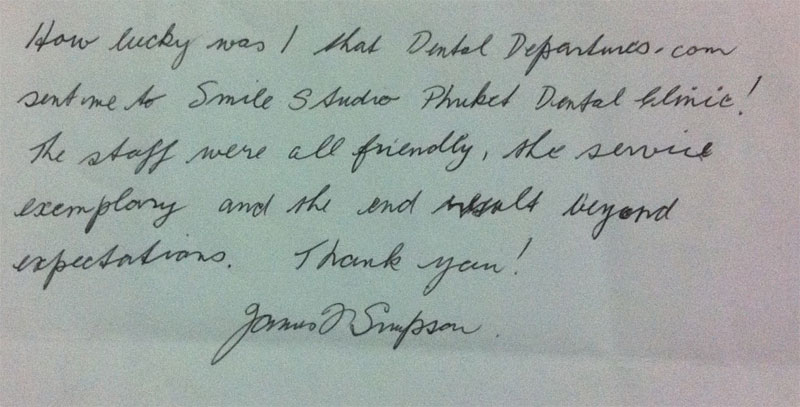 How lucky was I that Dental Departures.com
sent me to Smile Studio Phuket Dental Clinic!
The staff were all friendly, the service
exemplary and the end result beyond
expectations. Thank you!
James J Simpson.